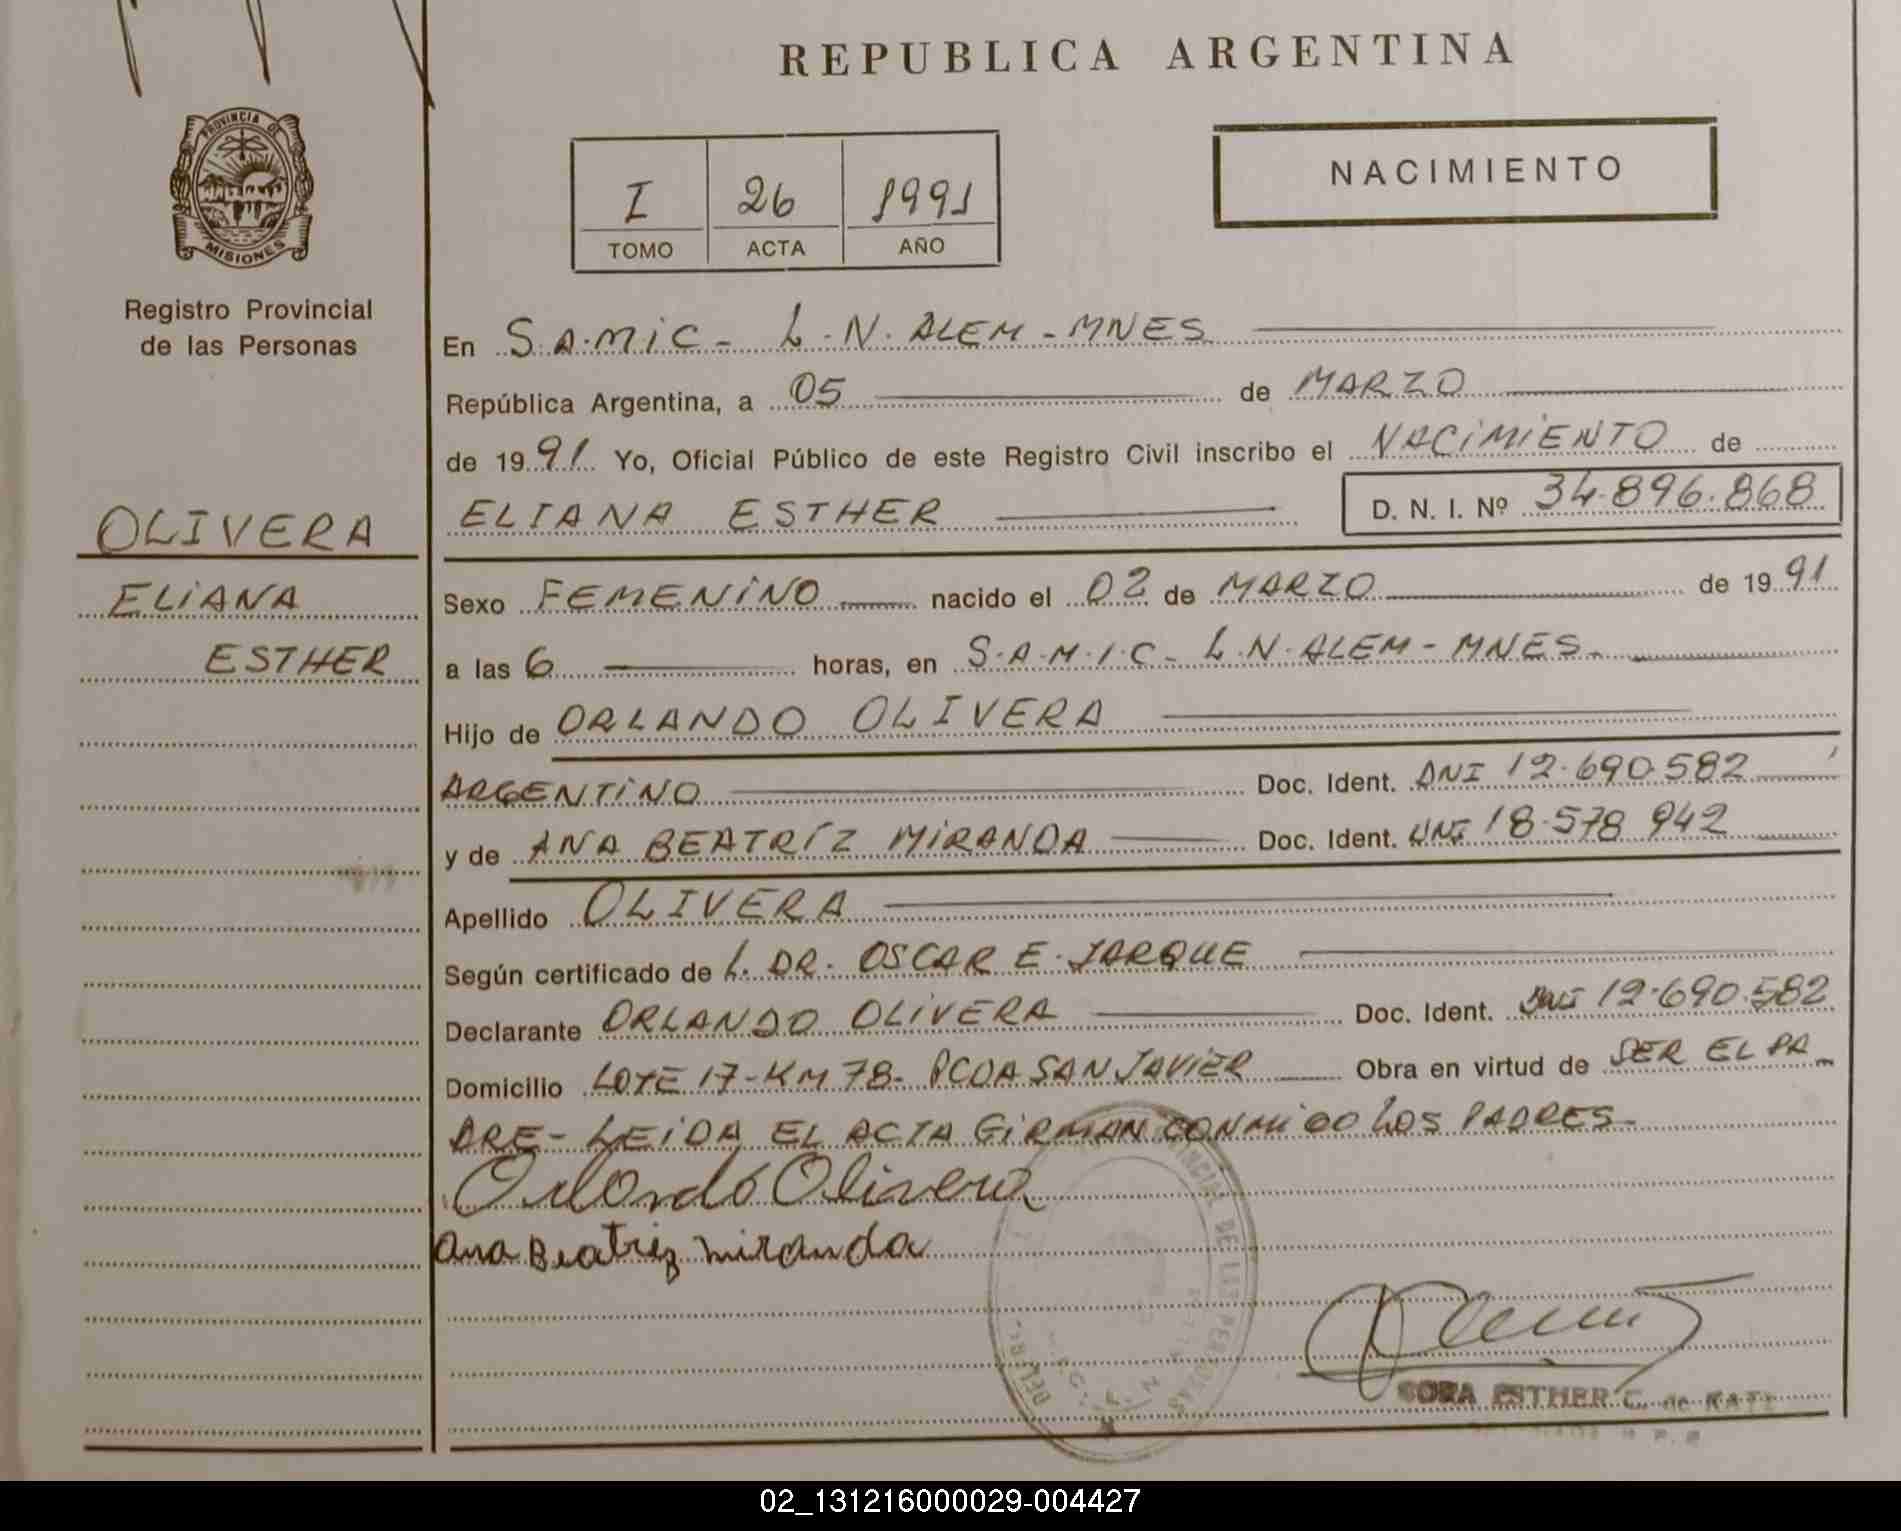 REPUBLICA ARGENTINA
PROVINCIA DE
MISIONES
Registro Provincial
de las Personas
I 26 1991
TOMO ACTA AÑO
NACIMIENTO
OLIVERA
ELIANA
ESTHER
En S.A.MIC - L.N. ALEM - MNES
República Argentina, a 05 de MARZO
de 1991 Yo, Oficial Público de este Registro Civil inscribo el NACIMIENTO de
ELIANA ESTHER D. N. I. Nº 34.896.868
Sexo FEMENINO nacido el 02 de MARZO de 1991
a las 6 horas, en S.A.M.I.C - L.N. ALEM - MNES -
Hijo de ORLANDO OLIVERA
ARGENTINO Doc. Ident. DNI 12.690.582
y de ANA BEATRÍZ MIRANDA Doc. Ident. DNI 18.578.942
Apellido OLIVERA
Según certificado de L. DR. OSCAR E. JARQUE
Declarante ORLANDO OLIVERA Doc. Ident. DNI 12.690.582
Domicilio LOTE 17 - KM 78 - PCDA SAN JAVIER Obra en virtud de SER EL PA-
DRE - LEIDA EL ACTA GIRMAN CONMIGO LOS PADRES -
Orlando Olivera
Ana Beatriz Miranda
DE LAS PERSONAS
ESTHER C. de
02_131216000029-004427